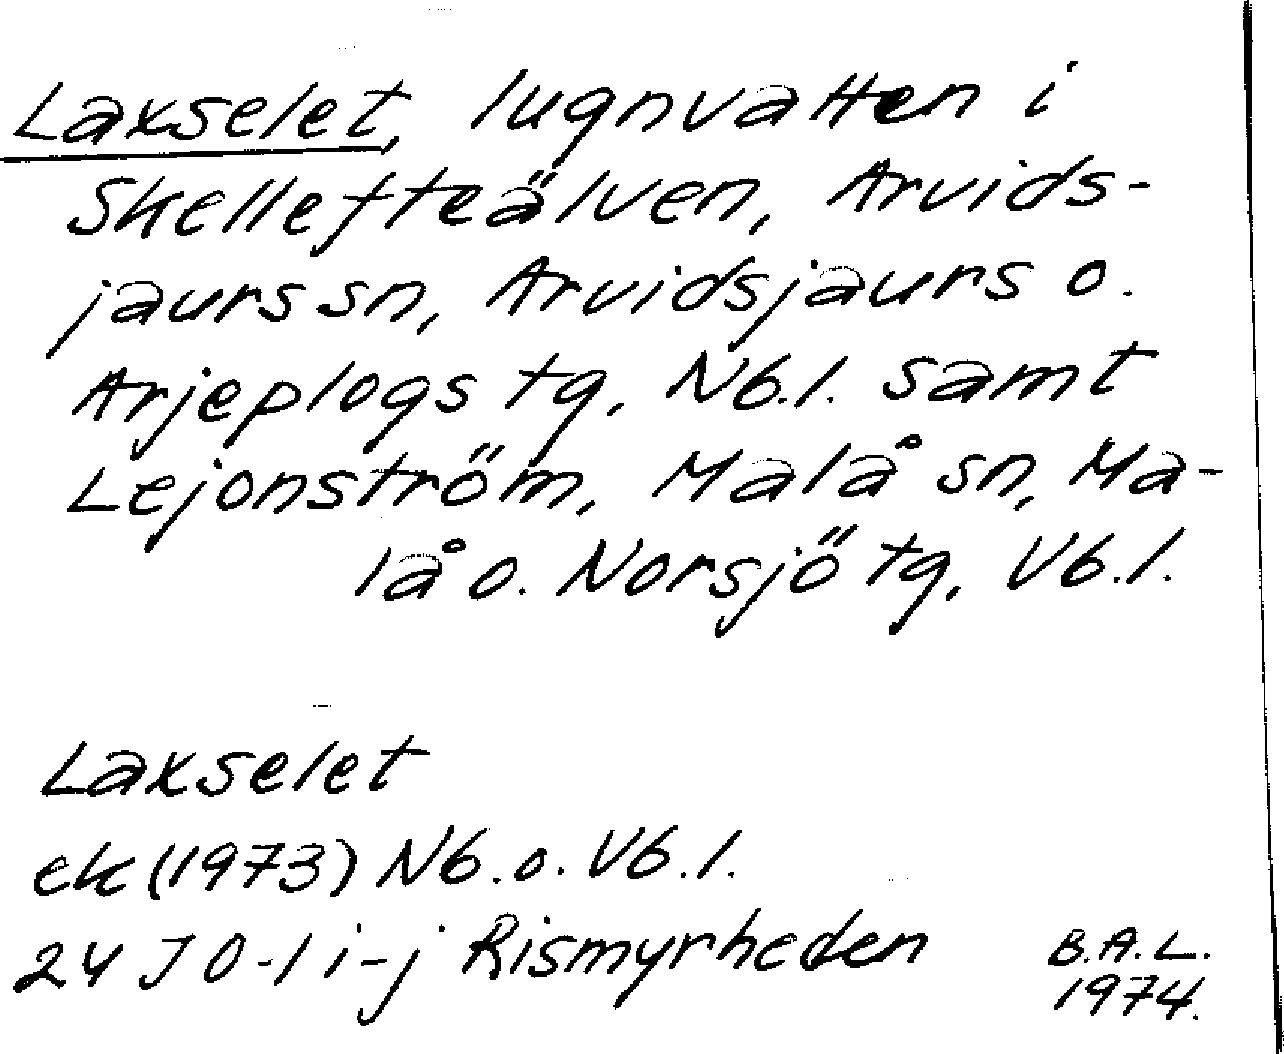 Laxselet, lugnvatten i
Skellefteälven, Arvids-
jaurs sn, Arvidsjaurs o.
Arjeplogs tg, Nb.l. samt
Lejonström, Malå sn, Ma-
lå o. Norsjö tg, Vb.l.
Laxselet
ek (1973) Nb. o. Vb.l.
24 J 0-1 i-j Rismyrheden
B.A.L.
1974.